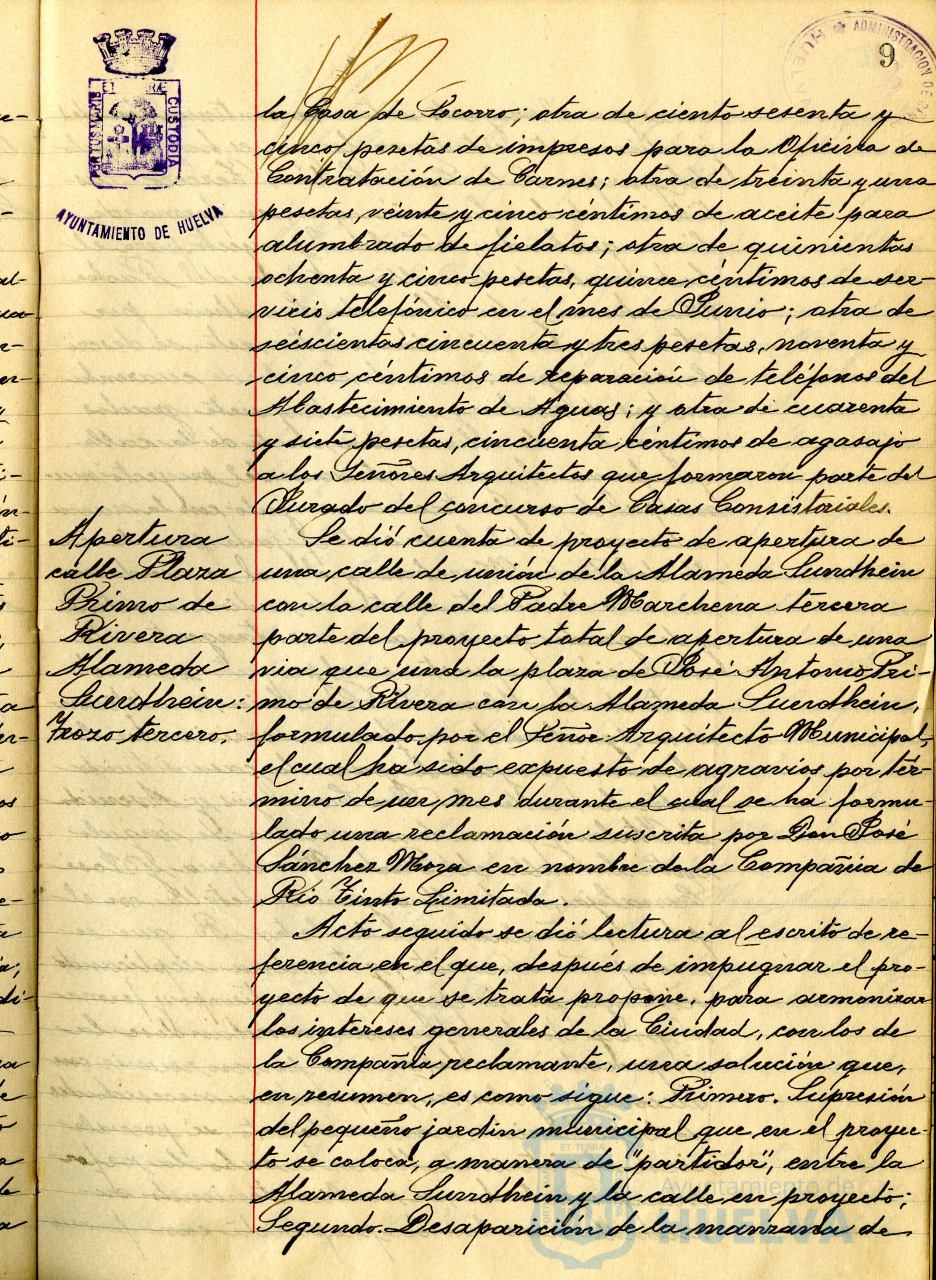 9
ADMINISTRACION DE
CUSTODIA
AYUNTAMIENTO DE HUELVA
la Casa de Socorro; otra de ciento sesenta y
cinco pesetas de impresos para la Oficina de
Contratación de Carnes; otra de treinta y una
pesetas, veinte y cinco céntimos de aceite para
alumbrado de fielatos; otra de quinientas
ochenta y cinco pesetas, quince céntimos de ser-
vicio telefónico en el mes de Junio; otra de
seiscientas cincuenta y tres pesetas, noventa y
cinco céntimos de reparación de teléfonos del
Abastecimiento de Aguas; y otra de cuarenta
y siete pesetas, cincuenta céntimos de agasajo
a los Señores Arquitectos que formaron parte del
Jurado del concurso de Casas Consistoriales.
Apertura
calle Plaza
Primo de
Rivera
Alameda
Sundhein:
Trozo tercero.
Se dió cuenta de proyecto de apertura de
una calle de unión de la Alameda Sundhein
con la calle del Padre Marchena tercera
parte del proyecto total de apertura de una
via que una la plaza de José Antonio Pri-
mo de Rivera con la Alameda Sundhein,
formulado por el Señor Arquitecto Municipal,
el cual ha sido expuesto de agravios por tér-
mino de un mes durante el cual se ha formu-
lado una reclamación suscrita por Don José
Sánchez Mora en nombre de la Compañia de
Rio Tinto Limitada.
Acto seguido se dió lectura al escrito de re-
ferencia en el que, después de impugnar el pro-
yecto de que se trata propone, para armonizar
los intereses generales de la Ciudad, con los de
la Compañia reclamante, una solución que,
en resumen, es como sigue: Primero. Supresión
del pequeño jardin municipal que en el proyec-
to se coloca, a manera de "partidor", entre la
Alameda Sundhein y la calle en proyecto;
Segundo. Desaparición de la manzana de
Ayuntamiento de
HUELVA